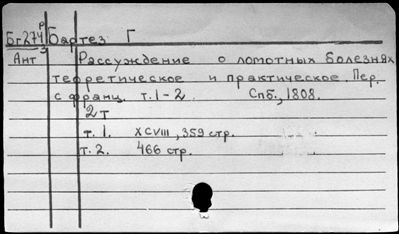 Бг274 Р/3 Бартез Г
Ант Рассуждение о ломотных болезнях
теоретическое и практическое. Пер.
с франц. т.1-2. Спб., 1808.
2т
т. 1. XCVIII, 359 стр.
т. 2. 466 стр.